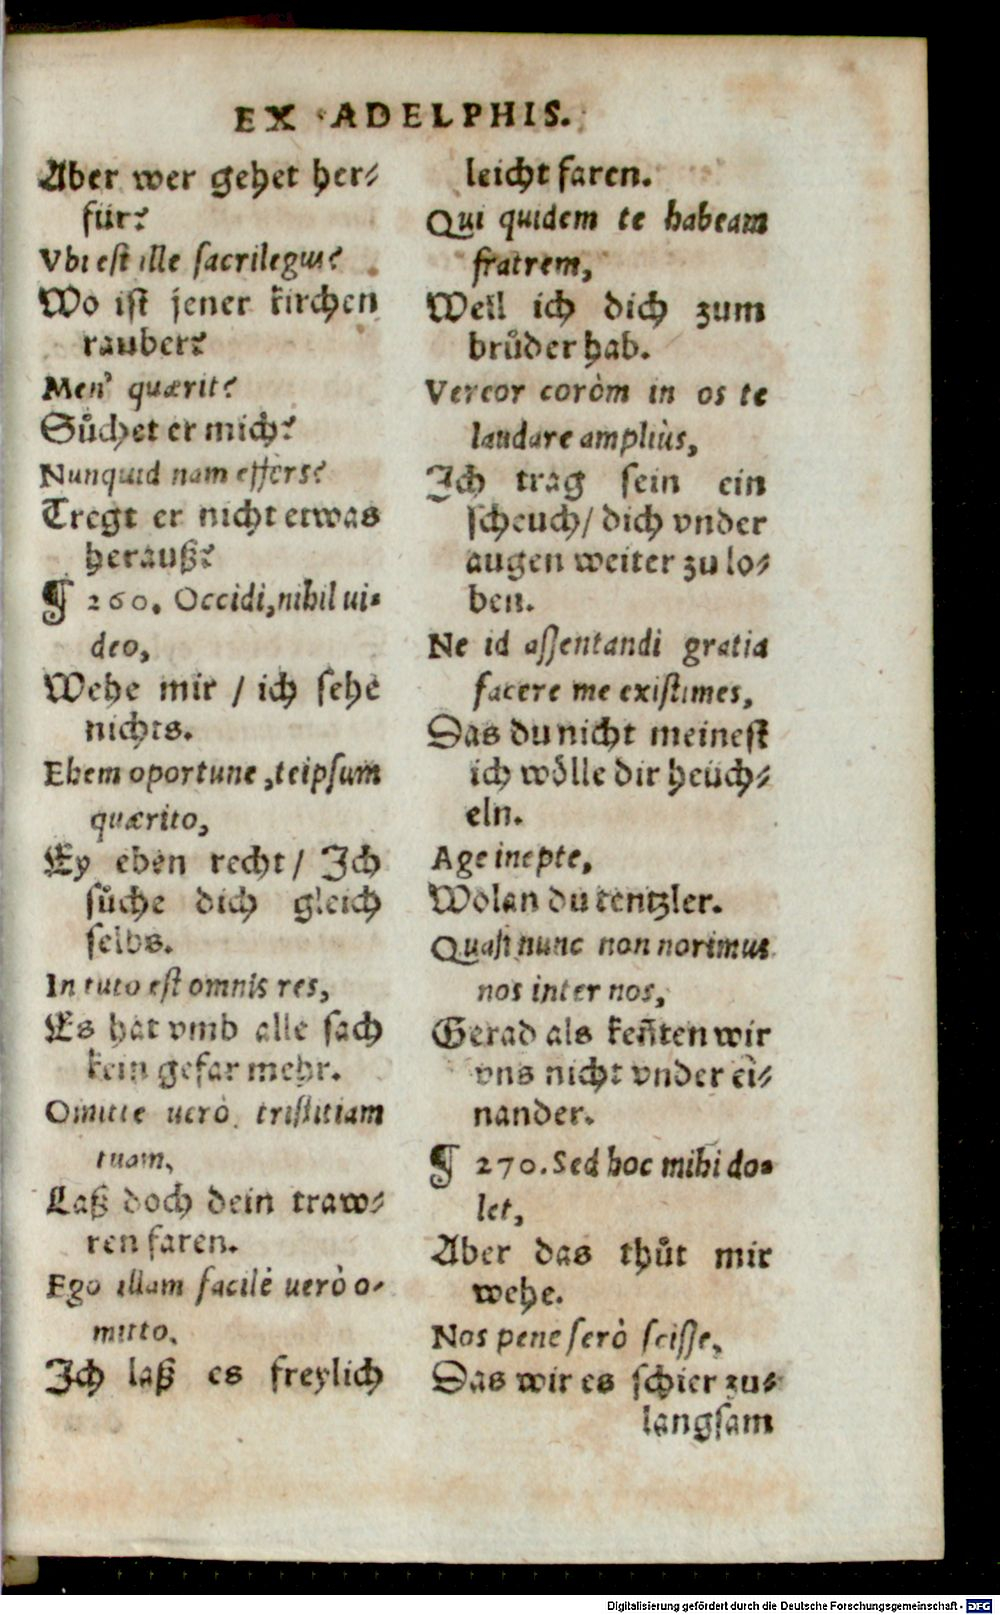 EX ADELPHIS.
Aber wer gehet her⸗
für?
Vbi est ille sacrilegus?
Wo ist jener kirchen
rauber?
Men' quærit?
Sůchet er mich?
Nunquid nam effers?
Tregt er nicht etwas
herauß?
¶ 260. Occidi, nihil ui⸗
deo,
Wehe mir / ich sehe
nichts.
Ehem oportune, teipsum
quærito,
Ey eben recht / Ich
sůche dich gleich
selbs.
In tuto est omnis res,
Es hat vmb alle sach
kein gefar mehr.
Omitte uerò tristitiam
tuam,
Laß doch dein traw⸗
ren faren.
Ego illam facilè uerò o⸗
mitto,
Ich laß es freylich
leicht faren.
Qui quidem te habeam
fratrem,
Weil ich dich zum
brůder hab.
Vereor coròm in os te
laudare ampliùs,
Ich trag sein ein
scheuch / dich vnder
augen weiter zu lo⸗
ben.
Ne id assentandi gratia
facere me existimes,
Das du nicht meinest
ich wölle dir heüch⸗
eln.
Age inepte,
Wolan du tentzler.
Quasi nunc non norimus
nos inter nos,
Gerad als keñten wir
vns nicht vnder ei⸗
nander.
¶ 270. Sed hoc mihi do⸗
let,
Aber das thůt mir
wehe.
Nos pene serò scisse,
Das wir es schier zu⸗
langsam
Digitalisierung gefördert durch die Deutsche Forschungsgemeinschaft - DFG